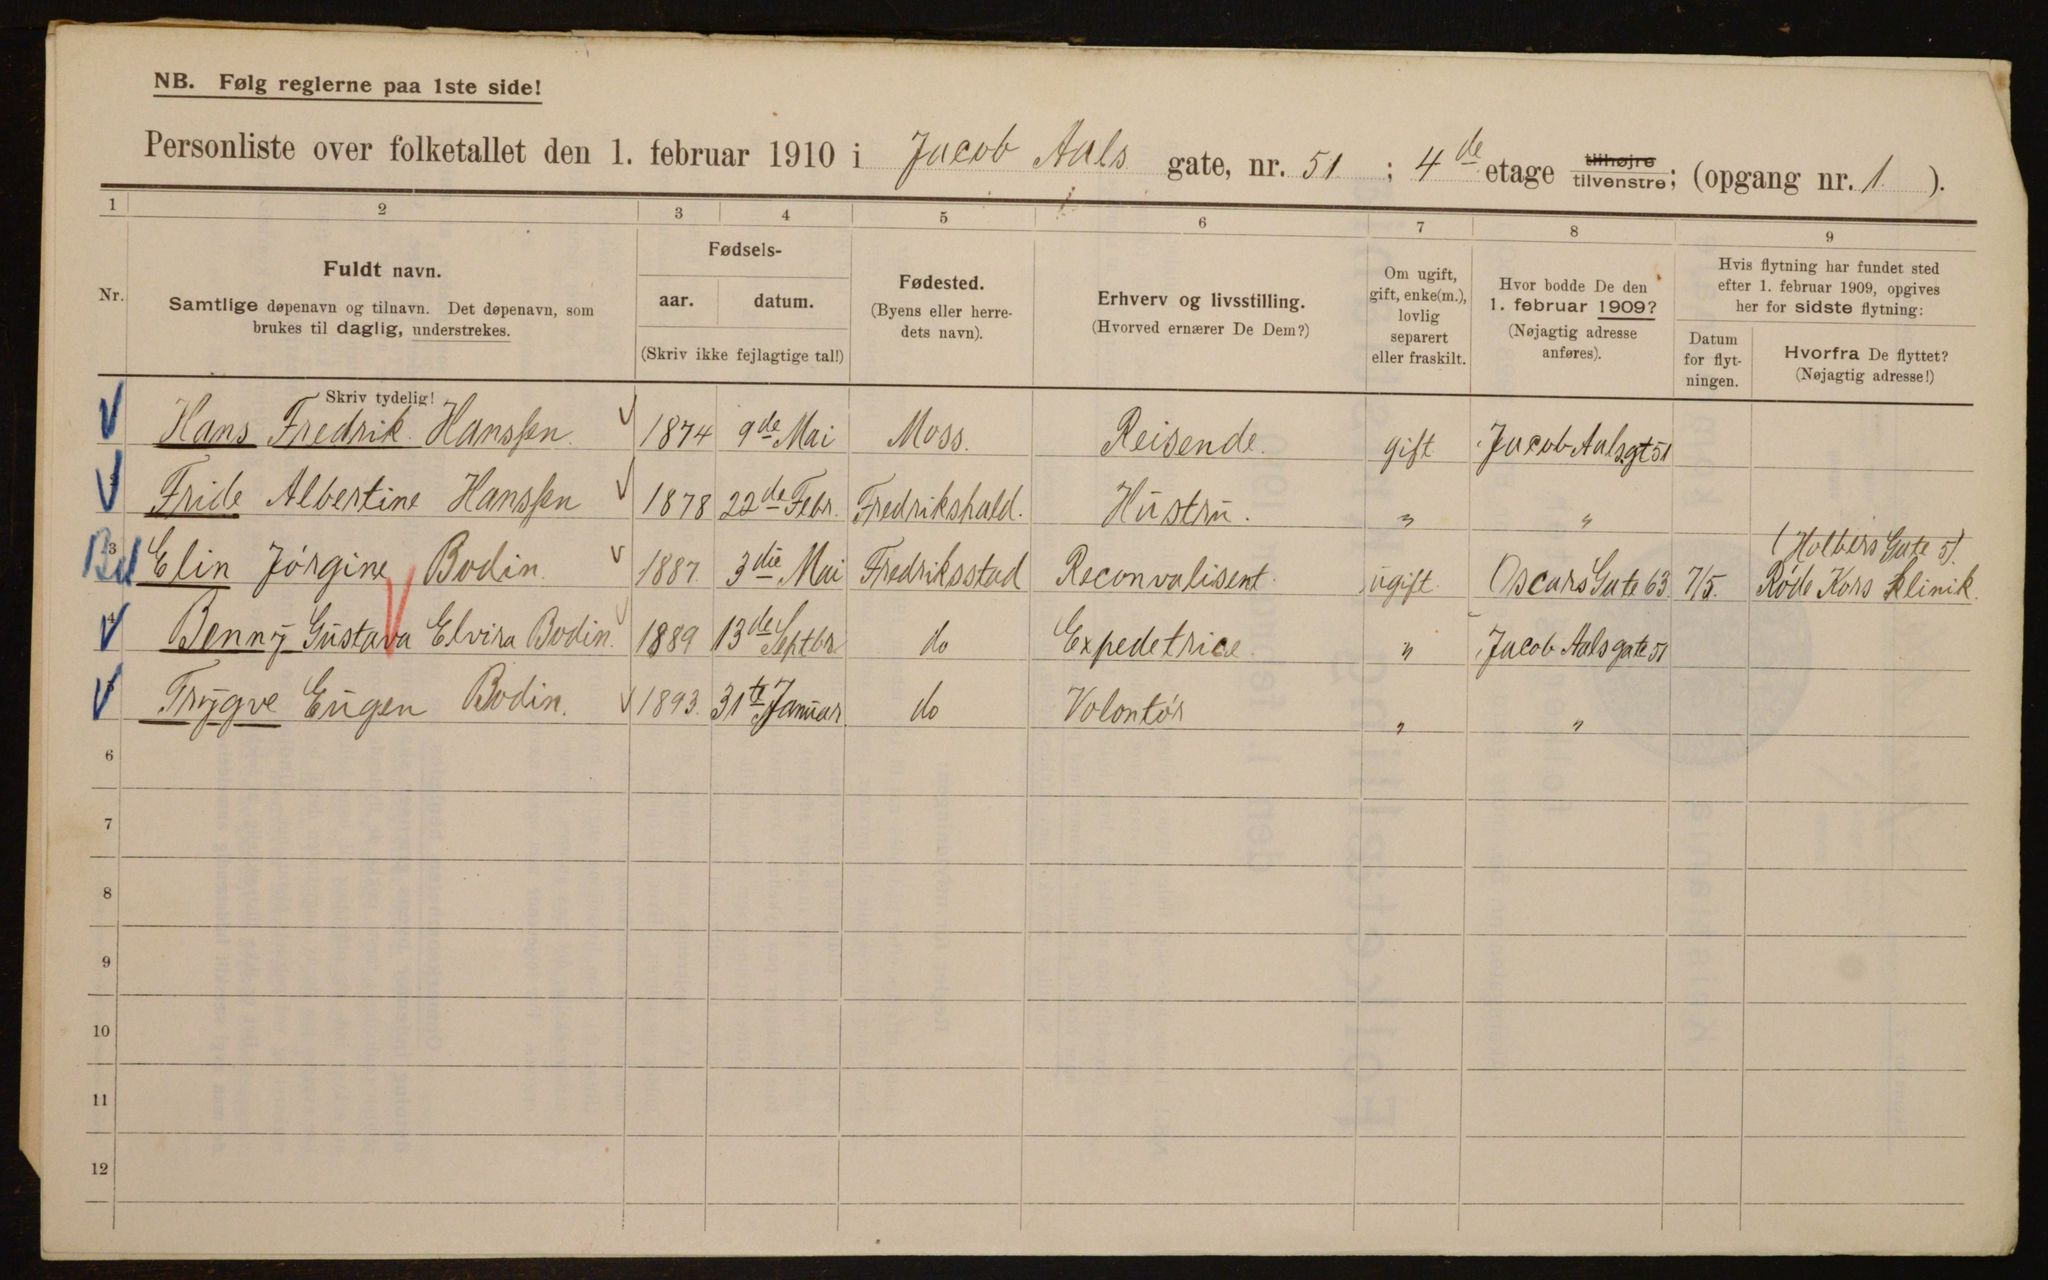 NB. Følg reglerne paa 1ste side!
Personliste over folketallet den 1. februar 1910 i Jacob Aals gate, nr. 51 ; 4de etage tilhøjre tilvenstre; (opgang nr. 1 ).
1 2 3 4 5 6 7 8 9
Nr.
Fuldt navn.
Samtlige døpenavn og tilnavn. Det døpenavn, som
brukes til daglig, understrekes.
Skriv tydelig!
Fødsels-
aar. datum.
(Skriv ikke fejlagtige tal!)
Fødested.
(Byens eller herre-
dets navn).
Erhverv og livsstilling.
(Hvorved ernærer De Dem?)
Om ugift,
gift, enke(m.),
lovlig
separert
eller fraskilt.
Hvor bodde De den
1. februar 1909?
(Nøjagtig adresse
anføres).
Hvis flytning har fundet sted
efter 1. februar 1909, opgives
her for sidste flytning:
Datum
for flyt-
ningen.
Hvorfra De flyttet?
(Nøjagtig adresse!)
Hans Fredrik Hanssen. 1874 9de Mai Moss. Reisende. gift Jacob Aalsgt 51
Fride Albertine Hanssen 1878 22de Febr. Fredrikshald. Hustru. " "
(Holbers Gate 5).
3 Elin Jørgine Bodin. 1887. 3die Mai Fredriksstad Reconvalisent. ugift. Oscars Gate 63. 7/5. Røde Kors Klinik.
4 Benny Gustava Elvira Bodin. 1889 13de Septbr do Expedetrice. " Jacob Aals gate 51
Trygve Eugen Bodin. 1893. 31te Januar do Volontør " "
6
7
8
9
10
11
12